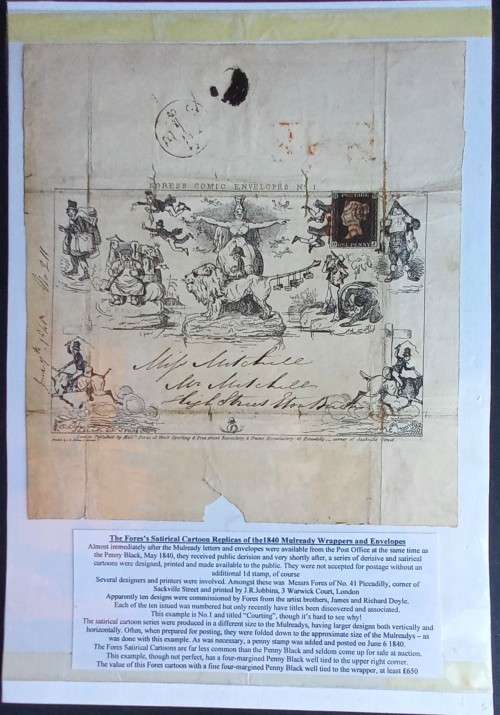 FORES'S COMIC ENVELOPES No. 1
POSTAGE
ONE PENNY
Miss Mitchell
Mr Mitchell
High Street Eton
London Published by Fores at their Sporting & Fine print Repository & Frame Manufactory 41 Piccadilly, corner of Sackville Street
The Fores's Satirical Cartoon Replicas of the1840 Mulready Wrappers and Envelopes
Almost immediately after the Mulready letters and envelopes were available from the Post Office at the same time as
the Penny Black, May 1840, they received public derision and very shortly after, a series of derisive and satirical
cartoons were designed, printed and made available to the public. They were not accepted for postage without an
additional 1d stamp, of course
Several designers and printers were involved. Amongst these was Messrs Fores of No. 41 Piccadilly, corner of
Sackville Street and printed by J.R.Jobbins, 3 Warwick Court, London
Apparently ten designs were commissioned by Fores from the artist brothers, James and Richard Doyle.
Each of the ten issued was numbered but only recently have titles been discovered and associated.
This example is No.1 and titled "Courting", though it's hard to see why!
The satirical cartoon series were produced in a different size to the Mulreadys, having larger designs both vertically and
horizontally. Often, when prepared for posting, they were folded down to the approximate size of the Mulreadys – as
was done with this example. As was necessary, a penny stamp was added and posted on June 6 1840.
The Fores Satirical Cartoons are far less common than the Penny Black and seldom come up for sale at auction.
This example, though not perfect, has a four-margined Penny Black well tied to the upper right corner.
The value of this Fores cartoon with a fine four-margined Penny Black well tied to the wrapper, at least £650